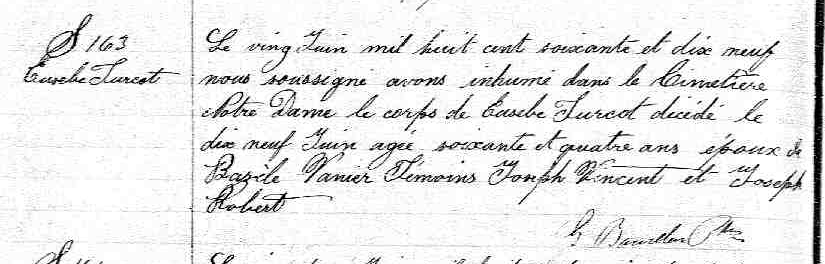 S 163
Eusebe Turcot
Le ving Juin mil huit cent soixante et dix neuf
nous soussigné avons inhumé dans le Cimetière
Notre Dame le corps de Eusebe Turcot décédé le
dix neuf Juin agée soixante et quatre ans époux de
Bazile Vanier Témoins Joseph Vincent et Joseph
Robert
Ptre